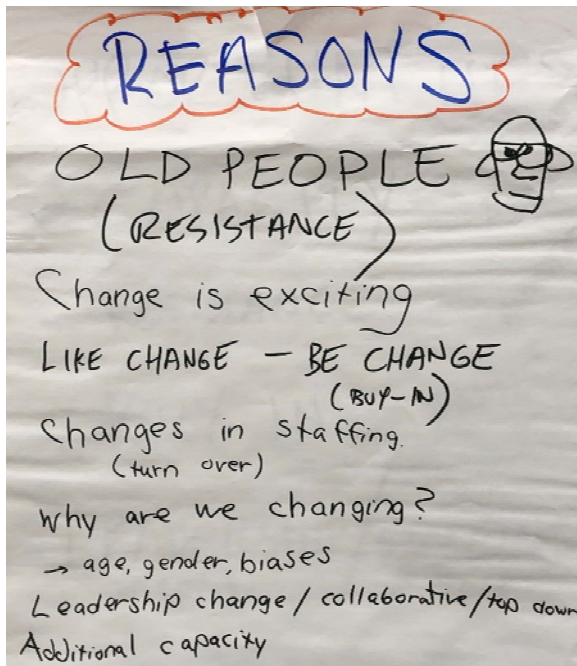 REASONS
OLD PEOPLE
(RESISTANCE)
Change is exciting
LIKE CHANGE – BE CHANGE
(BUY-IN)
Changes in staffing.
(turn over)
Why are we changing?
→ age, gender, biases
Leadership change / collaborative / top down
Additional capacity